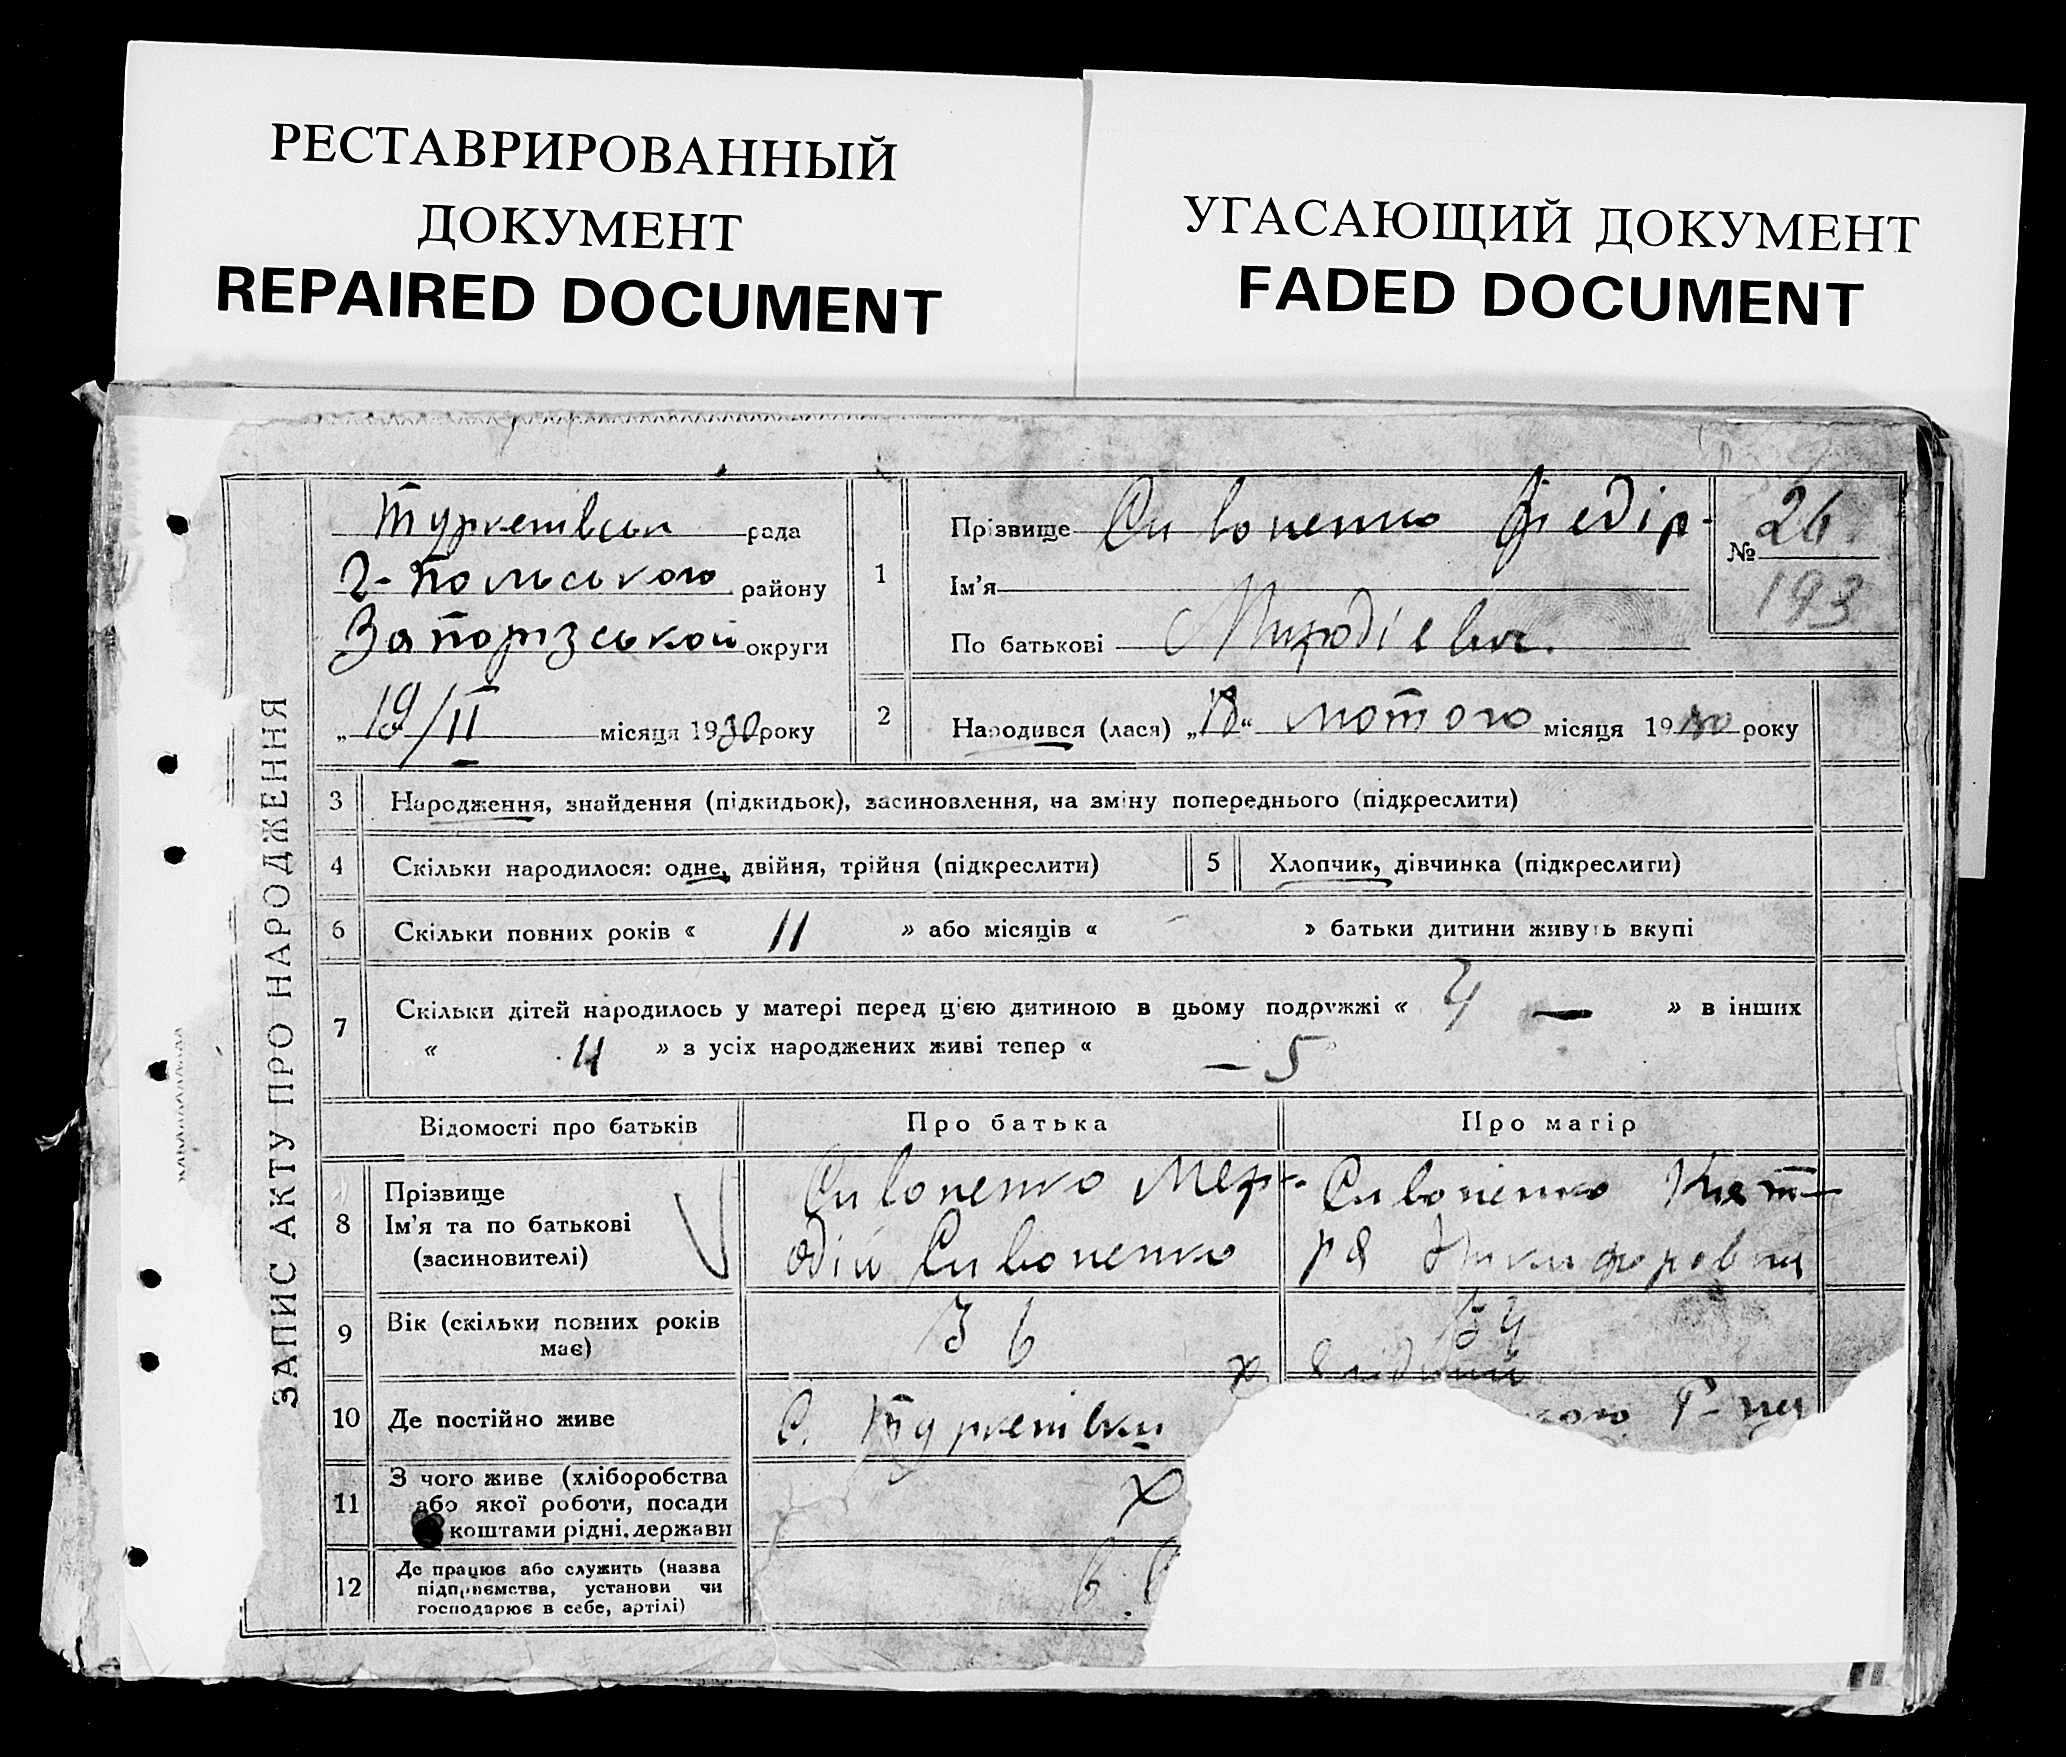 РЕСТАВРИРОВАННЫЙ
ДОКУМЕНТ
REPAIRED DOCUMENT
УГАСАЮЩИЙ ДОКУМЕНТ
FADED DOCUMENT
ЗАПИС АКТУ ПРО НАРОДЖЕННЯ
рада
Г-Польського району
Запорізської округи
„19/II місяця 1930 року
1
Прізвище Сивоненко Федір
Ім'я
По батькові
№ 26
193
2
Народився (лася) „18“ лютого місяця 1930 року
3 Народження, знайдення (підкидьок), засиновлення, на зміну попереднього (підкреслити)
4 Скільки народилося: одне, двійня, трійня (підкреслити)
5 Хлопчик, дівчинка (підкреслити)
6 Скільки повних років « 11 » або місяців « - » батьки дитини живуть вкупі
7 Скільки дітей народилось у матері перед цією дитиною в цьому подружжі « 4 — » в інших
« » з усіх народжених живі тепер « — 5 »
Відомості про батьків
Про батька
Про матір
8 Прізвище
Ім'я та по батькові
(засиновителі)
Сивоненко Меф-
одій Сивоненко
Сивоненко
9 Вік (скільки повних років
має)
36
34
10 Де постійно живе
с.
11 З чого живе (хліборобства
або якої роботи, посади
коштами рідні, держави
Х
12 Де працює або служить (назва
підприємства, установи чи
господарює в себе, артілі)